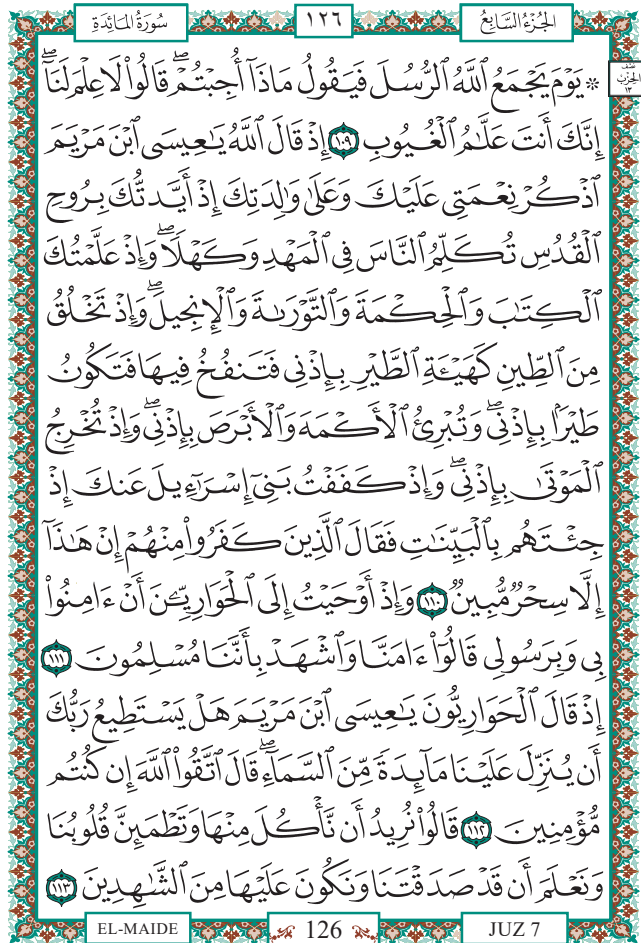 سُورَةُ المَائدَةِ ١٢٦ الجُزءُ السَّابِعُ
۞ يَوْمَ يَجْمَعُ ٱللَّهُ ٱلرُّسُلَ فَيَقُولُ مَاذَآ أُجِبْتُمْۖ قَالُوا۟ لَا عِلْمَ لَنَآۖ
نصف الحزب ١٣
إِنَّكَ أَنتَ عَلَّـٰمُ ٱلْغُيُوبِ ١٠٩ إِذْ قَالَ ٱللَّهُ يَـٰعِيسَى ٱبْنَ مَرْيَمَ
ٱذْكُرْ نِعْمَتِى عَلَيْكَ وَعَلَىٰ وَٰلِدَتِكَ إِذْ أَيَّدتُّكَ بِرُوحِ
ٱلْقُدُسِ تُكَلِّمُ ٱلنَّاسَ فِى ٱلْمَهْدِ وَكَهْلًاۖ وَإِذْ عَلَّمْتُكَ
ٱلْكِتَـٰبَ وَٱلْحِكْمَةَ وَٱلتَّوْرَىٰةَ وَٱلْإِنجِيلَۖ وَإِذْ تَخْلُقُ
مِنَ ٱلطِّينِ كَهَيْـَٔةِ ٱلطَّيْرِ بِإِذْنِى فَتَنفُخُ فِيهَا فَتَكُونُ
طَيْرًۢا بِإِذْنِىۖ وَتُبْرِئُ ٱلْأَكْمَهَ وَٱلْأَبْرَصَ بِإِذْنِىۖ وَإِذْ تُخْرِجُ
ٱلْمَوْتَىٰ بِإِذْنِىۖ وَإِذْ كَفَفْتُ بَنِىٓ إِسْرَٰٓءِيلَ عَنكَ إِذْ
جِئْتَهُم بِٱلْبَيِّنَـٰتِ فَقَالَ ٱلَّذِينَ كَفَرُوا۟ مِنْهُمْ إِنْ هَـٰذَآ
إِلَّا سِحْرٌ مُّبِينٌ ١١٠ وَإِذْ أَوْحَيْتُ إِلَى ٱلْحَوَارِيِّـۧنَ أَنْ ءَامِنُوا۟
بِى وَبِرَسُولِى قَالُوٓا۟ ءَامَنَّا وَٱشْهَدْ بِأَنَّنَا مُسْلِمُونَ ١١١
إِذْ قَالَ ٱلْحَوَارِيُّونَ يَـٰعِيسَى ٱبْنَ مَرْيَمَ هَلْ يَسْتَطِيعُ رَبُّكَ
أَن يُنَزِّلَ عَلَيْنَا مَآئِدَةً مِّنَ ٱلسَّمَآءِۖ قَالَ ٱتَّقُوا۟ ٱللَّهَ إِن كُنتُم
مُّؤْمِنِينَ ١١٢ قَالُوا۟ نُرِيدُ أَن نَّأْكُلَ مِنْهَا وَتَطْمَئِنَّ قُلُوبُنَا
وَنَعْلَمَ أَن قَدْ صَدَقْتَنَا وَنَكُونَ عَلَيْهَا مِنَ ٱلشَّـٰهِدِينَ ١١٣
EL-MAIDE 126 JUZ 7